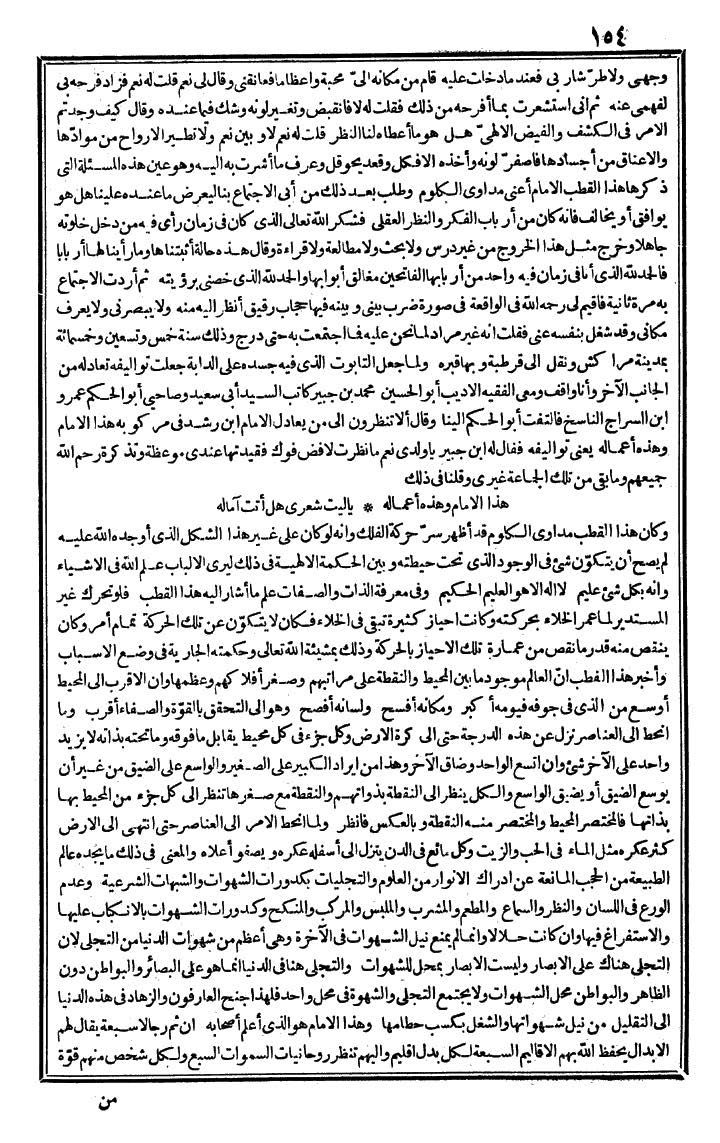 ١٥٤
وجهى ولا طر شاربى فعند ما دخلت عليه قام من مكانه الىّ محبة واعظاما فعانقنى وقال لى نعم قلت له نعم فزاد فرحه بى
لفهمى عنه ثم انى استشعرت بما أفرحه من ذلك فقلت له لا فانقبض وتغير لونه وشك فيما عنده وقال كيف وجدتم
الامر فى الكشف والفيض الالهىّ هل هو ما أعطاه لنا النظر قلت له نعم لا و بين نعم ولا تطير الارواح من موادّها
والاعناق من أجسادها فاصفرّ لونه وأخذه الافكل وقعد يحوقل وعرف ما أشرت به اليه وهو عين هذه المسئلة التى
ذكرها هذا القطب الامام أعنى مداوى الكلوم وطلب بعد ذلك من أبى الاجتماع بنا ليعرض ما عنده علينا هل هو
يوافق أو يخالف فانه كان من أرباب الفكر والنظر العقلى فشكر الله تعالى الذى كان فى زمان رأى فيه من دخل خلوته
جاهلا وخرج مثل هذا الخروج من غير درس ولا بحث ولا مطالعة ولا قراءة وقال هذه حالة أثبتناها وما رأينا لها أربابا
فالحمد لله الذى أنا فى زمان فيه واحد من أربابها الفاتحين مغالق أبوابها والحمد لله الذى خصنى برؤيته ثم أردت الاجتماع
به مرة ثانية فاقيم لى رحمه الله فى الواقعة فى صورة ضرب بينى وبينه فيها حجاب رقيق أنظر اليه منه ولا يبصرنى ولا يعرف
مكانى وقد شغل بنفسه عنى فقلت انه غير مراد لما نحن عليه فما اجتمعت به حتى درج وذلك سنة خمس وتسعين وخمسمائة
بمدينة مراكش ونقل الى قرطبة وبها قبره ولما جعل التابوت الذى فيه جسده على الدابة جعلت تواليفه تعادله من
الجانب الآخر وأنا واقف ومعى الفقيه الاديب أبو الحسين محمد بن جبير كاتب السيد أبى سعيد وصاحبى أبو الحكم عمرو
ابن السراج الناسخ فالتفت أبو الحكم الينا وقال ألا تنظرون الى من يعادل الامام ابن رشد فى مركوبه هذا الامام
وهذه أعماله يعنى تواليفه فقال له ابن جبير يا ولدى نعم ما نظرت لا فض فوك فقيدتها عندى موعظة وتذكرة رحم الله
جميعهم وما بقى من تلك الجماعة غيرى وقلنا فى ذلك
هذا الامام وهذه أعماله * يا ليت شعرى هل أتت آماله
وكان هذا القطب مداوى الكلوم قد أظهر سرّ حركة الفلك وانه لو كان على غير هذا الشكل الذى أوجده الله عليه
لم يصح أن يتكوّن شئ فى الوجود الذى تحت حيطته وبين الحكمة الالهية فى ذلك ليرى الالباب علم الله فى الاشياء
وانه بكل شئ عليم لا اله الا هو العليم الحكيم وفى معرفة الذات والصفات علم ما أشار اليه هذا القطب فلو تحرك غير
المستدير لما عمر الخلاء بحركته وكانت احياز كثيرة تبقى فى الخلاء فكان لا يتكوّن عن تلك الحركة تمام أمر وكان
ينقص منه قدر ما نقص من عمارة تلك الاحياز بالحركة وذلك بمشيئة الله تعالى وحكمته الجارية فى وضع الاسباب
وأخبر هذا القطب انّ العالم موجود ما بين المحيط والنقطة على مراتبهم وصغر أفلاكهم وعظمها وان الاقرب الى المحيط
أوسع من الذى فى جوفه فيومه أكبر ومكانه أفسح ولسانه أفصح وهو الى التحقق بالقوّة والصفاء أقرب وما
انحط الى العناصر نزل عن هذه الدرجة حتى الى كرة الارض وكل جزء فى كل محيط يقابل ما فوقه وما تحته بذاته لا يزيد
واحد على الآخر شئ وان اتسع الواحد وضاق الآخر وهذا من ايراد الكبير على الصغير والواسع على الضيق من غير أن
يوسع الضيق أو يضيق الواسع والكل ينظر الى النقطة بذواتهم والنقطة مع صغرها تنظر الى كل جزء من المحيط بها
بذاتها فالمختصر المحيط والمختصر منه النقطة وبالعكس فانظر ولما انحط الامر الى العناصر حتى انتهى الى الارض
كثر عكره مثل الماء فى الحب والزيت وكل مائع فى الدن ينزل الى أسفله عكره ويصفو أعلاه والمعنى فى ذلك ما يجده عالم
الطبيعة من الحجب المانعة عن ادراك الانوار من العلوم والتجليات بكدورات الشهوات والشبهات الشرعية وعدم
الورع فى اللسان والنظر والسماع والمطعم والمشرب والملبس والمركب والمنكح وكدورات الشهوات بالانكباب عليها
والاستفراغ فيها وان كانت حلالا وانما لم يمنع نيل الشهوات فى الآخرة وهى أعظم من شهوات الدنيا من التجلى لان
التجلى هناك على الابصار وليست الابصار بمحل للشهوات والتجلى هنا فى الدنيا انما هو على البصائر والبواطن دون
الظاهر والبواطن محل الشهوات ولا يجتمع التجلى والشهوة فى محل واحد فلهذا جنح العارفون والزهاد فى هذه الدنيا
الى التقليل من نيل شهواتها والشغل بكسب حطامها وهذا الامام هو الذى أعلم أصحابه ان ثم رجالا سبعة يقال لهم
الابدال يحفظ الله بهم الاقاليم السبعة لكل بدل اقليم واليهم تنظر روحانيات السموات السبع ولكل شخص منهم قوّة
من